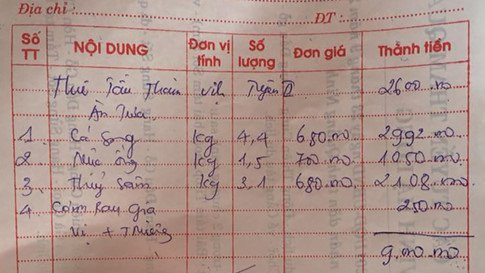 Địa chỉ: ĐT:
Số TT NỘI DUNG Đơn vị tính Số lượng Đơn giá Thành tiền
Thuê Tàu Thăm Vịnh Tuyến II 2600.000
Ăn Trưa
1. Cá Song kg 4,4 680.000 2992.000
2. Mực ống kg 1,5 700.000 1050.000
3. Thuỷ Sâm kg 3,1 680.000 2108.000
4. Cơm Rau Gia 250.000
Vị +
9.000.000